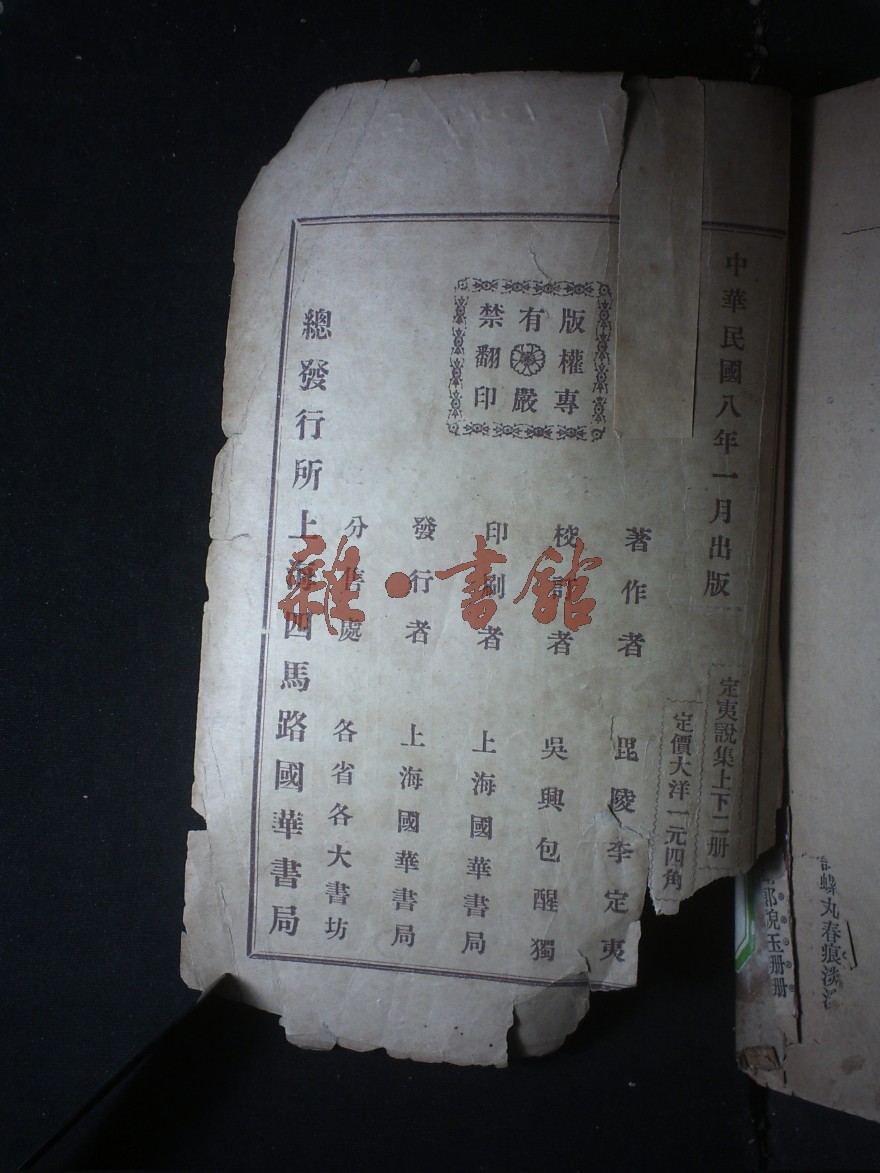 中華民國八年一月出版
定夷說集上下二册
定價大洋一元四角
版權專
有嚴
禁翻印
著作者 毘陵李定夷
校訂者 吳興包醒獨
印刷者 上海國華書局
發行者 上海國華書局
分售處 各省各大書坊
總發行所上海四馬路國華書局
雜·書館
蝶丸春痕淡
玉册册